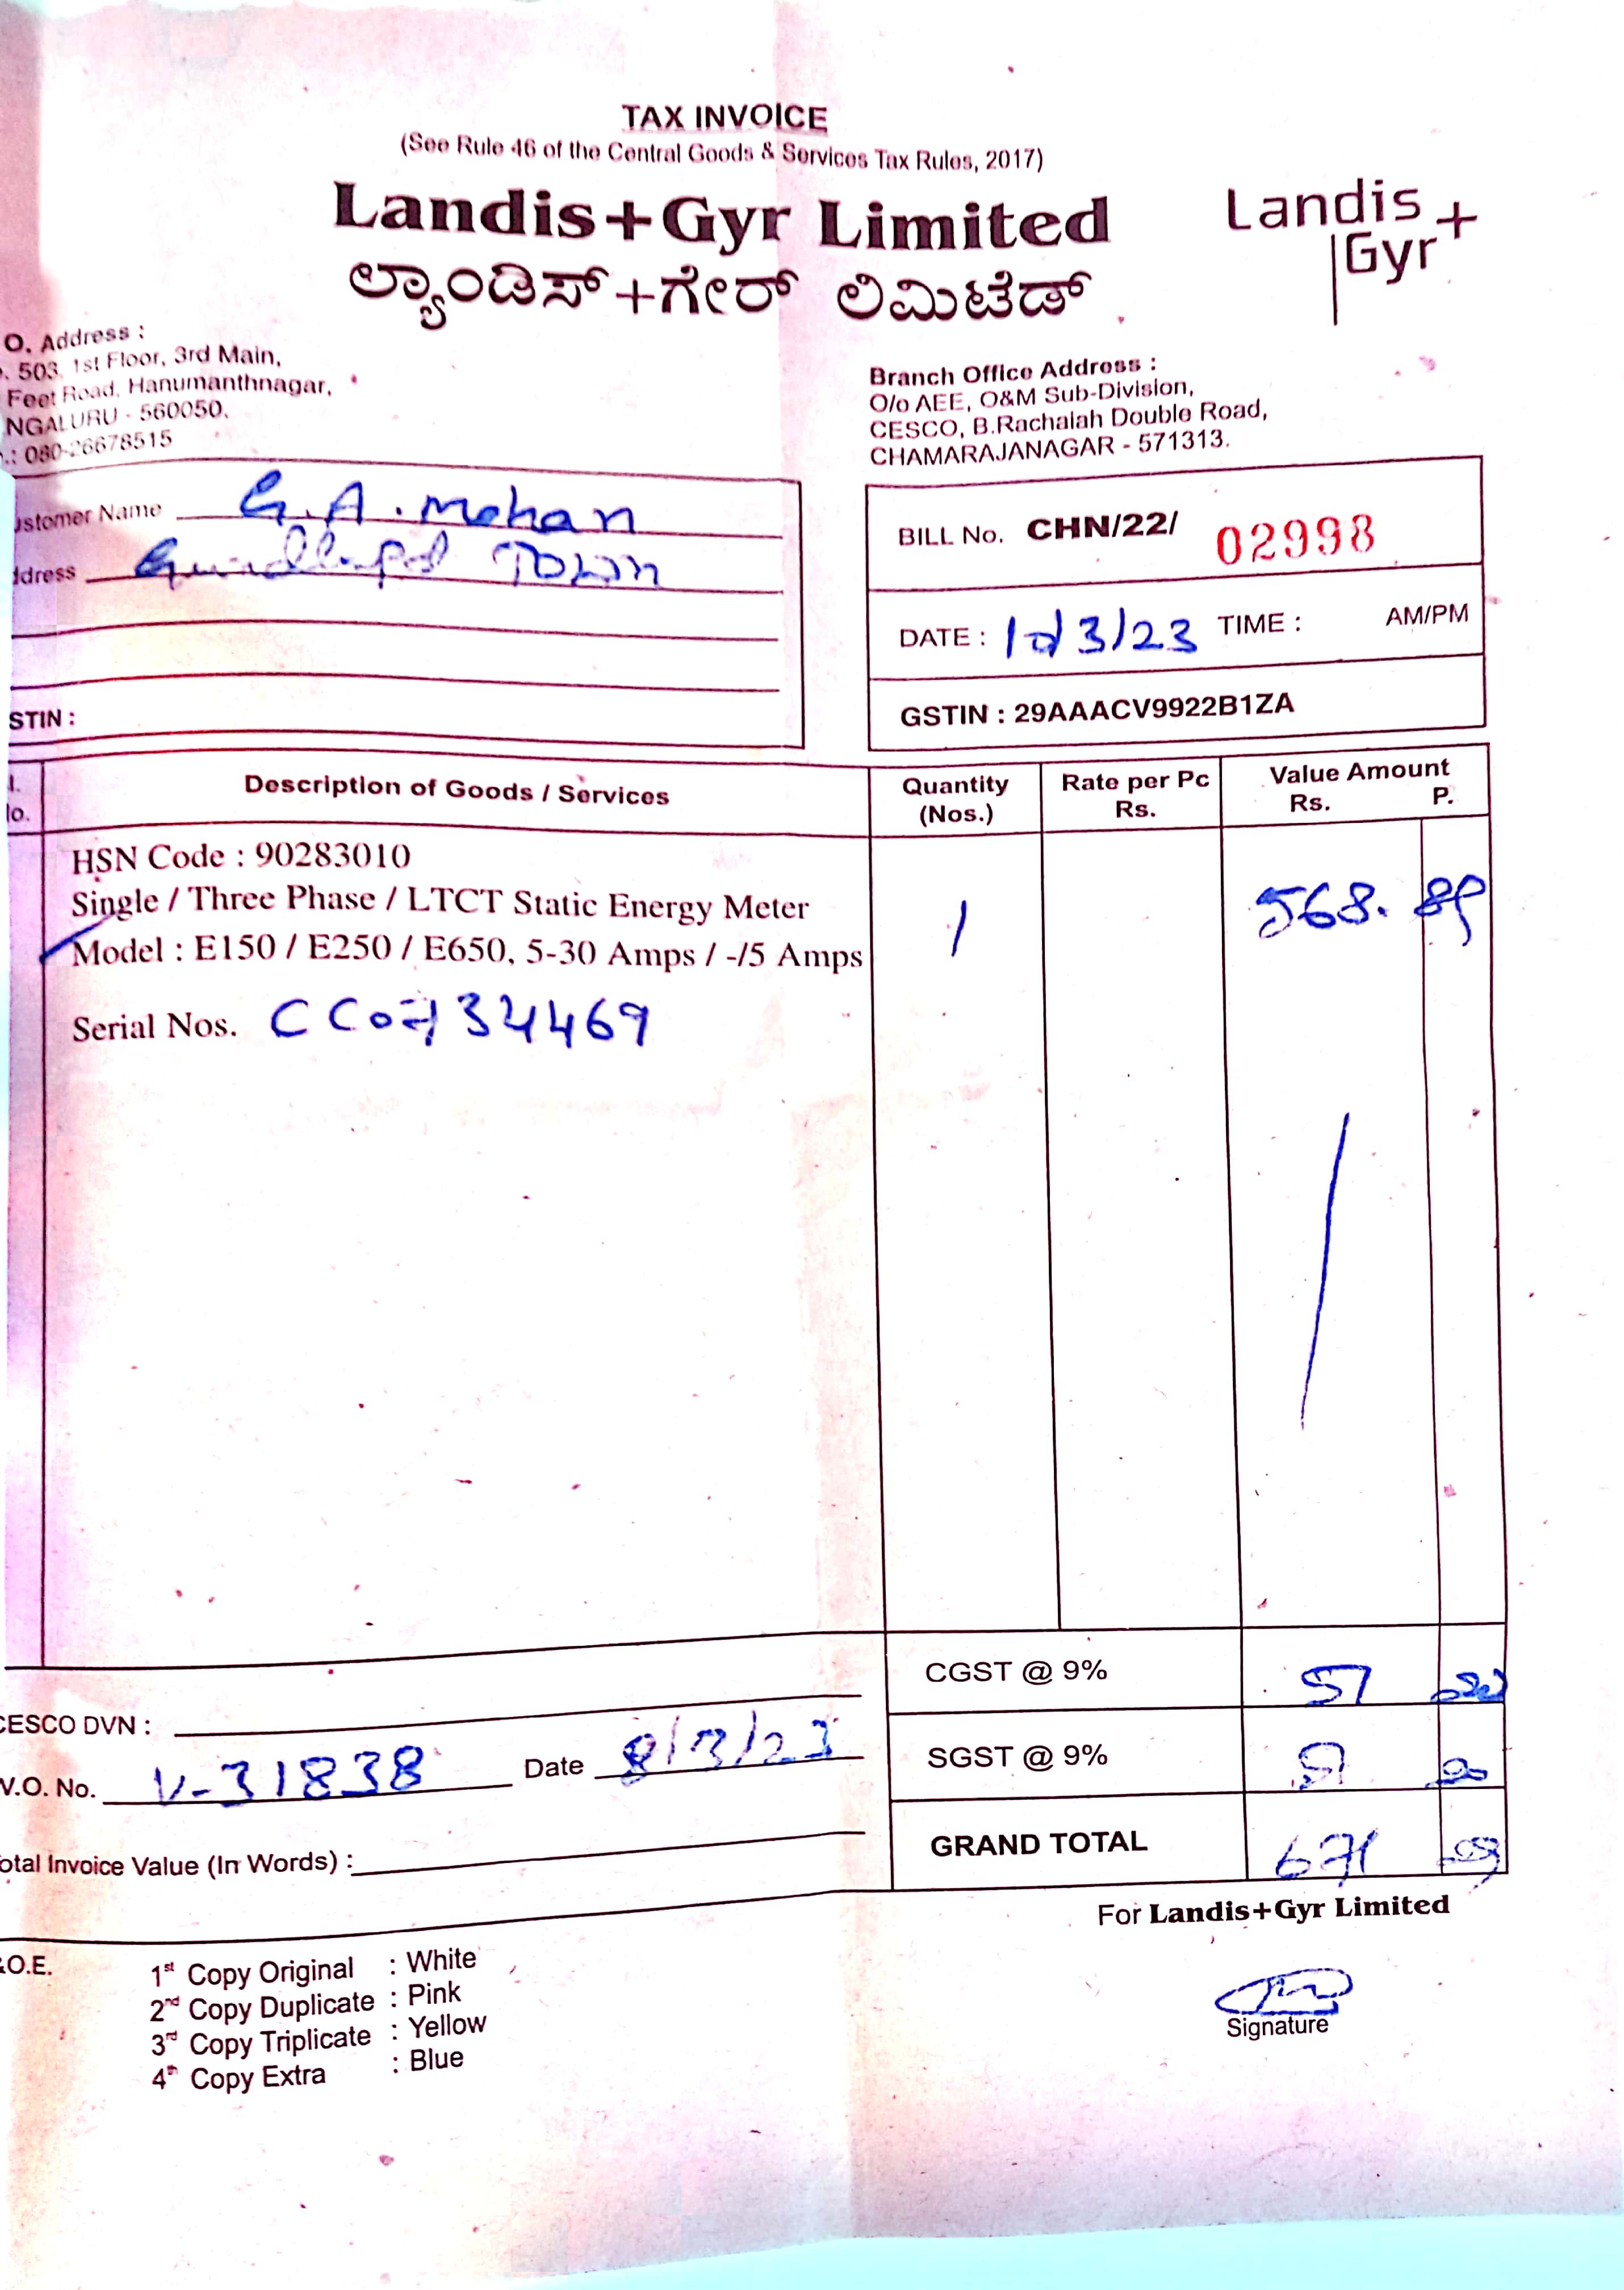 TAX INVOICE
(See Rule 46 of the Central Goods & Services Tax Rules, 2017)
Landis+Gyr Limited
ಲ್ಯಾಂಡಿಸ್+ಗೇರ್ ಲಿಮಿಟೆಡ್
Landis+
Gyr
O. Address :
503, 1st Floor, 3rd Main,
Feet Road, Hanumanthnagar,
NGALURU - 560050.
.: 080-26678515
Branch Office Address :
O/o AEE, O&M Sub-Division,
CESCO, B.Rachaiah Double Road,
CHAMARAJANAGAR - 571313.
ustomer Name G.A. Mohan
ddress Town
STIN :
BILL No. CHN/22/ 02998
DATE : 10/3/23 TIME : AM/PM
GSTIN : 29AAACV9922B1ZA
l. Description of Goods / Services Quantity Rate per Pc Value Amount
lo. (Nos.) Rs. Rs. P.
HSN Code : 90283010
Single / Three Phase / LTCT Static Energy Meter 1 568. 89
Model : E150 / E250 / E650, 5-30 Amps / -/5 Amps
Serial Nos. CC0734469
CGST @ 9% 51 20
CESCO DVN :
SGST @ 9% 51 20
V.O. No. V-31838 Date 8/3/23
GRAND TOTAL 671
otal Invoice Value (In Words) :
For Landis+Gyr Limited
&O.E.
1st Copy Original : White
2nd Copy Duplicate : Pink
3rd Copy Triplicate : Yellow
4th Copy Extra : Blue
Signature